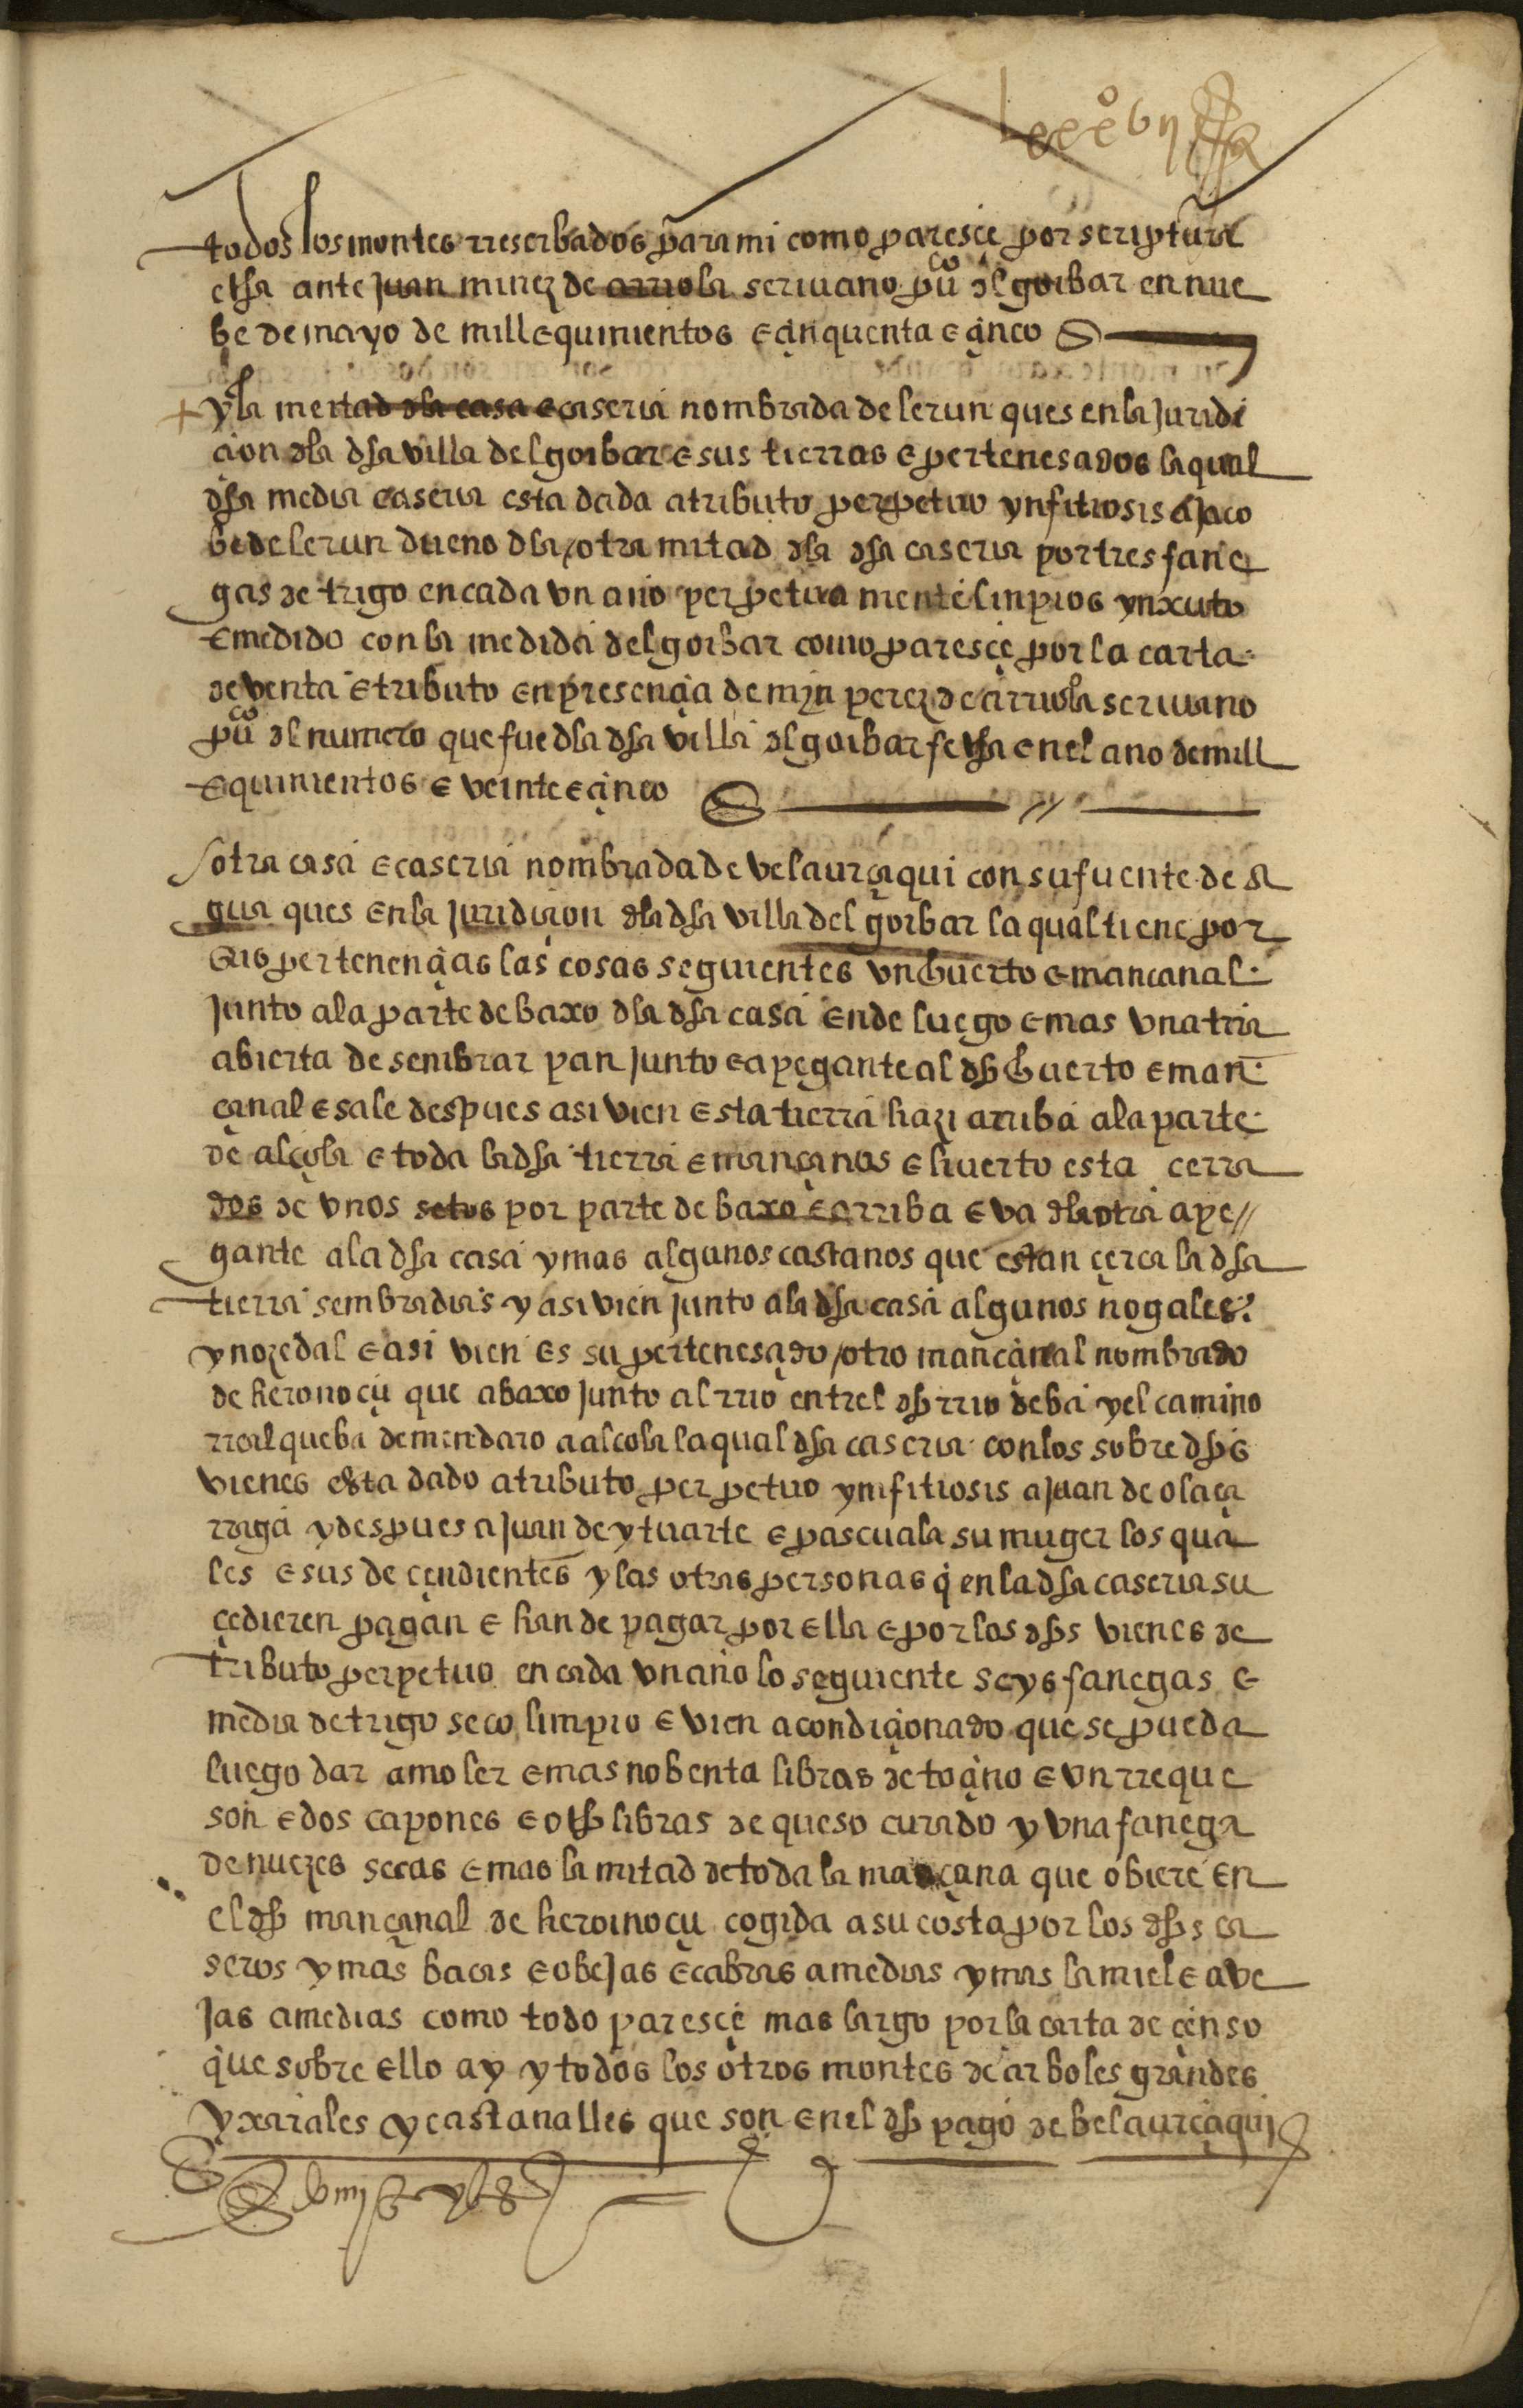 todos los montes rreserbados para mi como paresce por scriptura
etha ante juan minez de arriola scriuano pu^co del goibar en nue
be de mayo de mill e quinientos e çinquenta e çinco
y la meitad dla casa e caseria nombrada de lerun ques en la juridi
çion dla dha villa delgoibar e sus tierras e pertenesçados la qual
dha media caseria esta dada a tributo perpetuo ynfitiosis a jaco
be de lerun dueno dla otra mitad dla dha caseria por tres fane
gas de trigo en cada vn año perpetua mente linpios ynxuto
e medido con la medida delgoibar como paresçe por la carta
de venta e tributo en presençia de min perez de arriola scriuano
pu^co del numero que fue dla dha villa delgoibar fecha en el ano de mill
e quinientos e veinte e çinco
otra casa e caseria nombrada de velaurçaqui con su fuente de a
gua ques en la juridiçion dla dha villa delgoibar la qual tiene por
sus pertenençias las cosas seguientes vn huerto e mancanal
junto a la parte de baxo dla dha casa ende luego e mas vna trra
abierta de sembrar pan junto e apegante al dho huerto e man
çanal e sale despues asi vien esta tierra hazi arriba a la parte
de alçola e toda la dha tierra e mançanos e huerto esta cerra
dos de vnos setos por parte de baxo e arriba e va dla otra ape//
gante a la dha casa y mas algunos castanos que estan çerca la dha
tierra sembradias y asi vien junto a la dha casa algunos nogales
y nozedal e asi vien es su pertenesçado / otro mançanal nombrado
de heronoçu que abaxo junto al rrio entrel dho rrio deba y el camino
rreal que ba de mendaro a alcola la qual dha caseria con los sobre dhos
vienes esta dado a tributo perpetuo ynifitiosis a juan de olaça
rraga y despues a juan de ytuarte e pascuala su muger los qua
les e sus deçendientes y las otras personas q en la dha caseria su
çedieren pagan e han de pagar por ella e por los dhos vienes de
tributo perpetuo en cada vn año lo seguiente seys fanegas e
media de trigo seco limpio e vien acondiçionado que se pueda
luego dar a moler e mas nobenta libras de toçino e vn rreque
son e dos capones e otho libras de queso curado y vna fanega
de nuezes secas e mas la mitad de toda la mançana que obiere en
el dho mançanal de heroinoçu cogida a su costa por los dhos ca
seros y mas bacas e obejas e cabras a medias y mas la miel e abe
jas a medias como todo paresçe mas largo por la carta de çenso
que sobre ello ay y todos los otros montes de arboles grandes
y xarales y castanalles que son en el dho pago de belaurçaqui